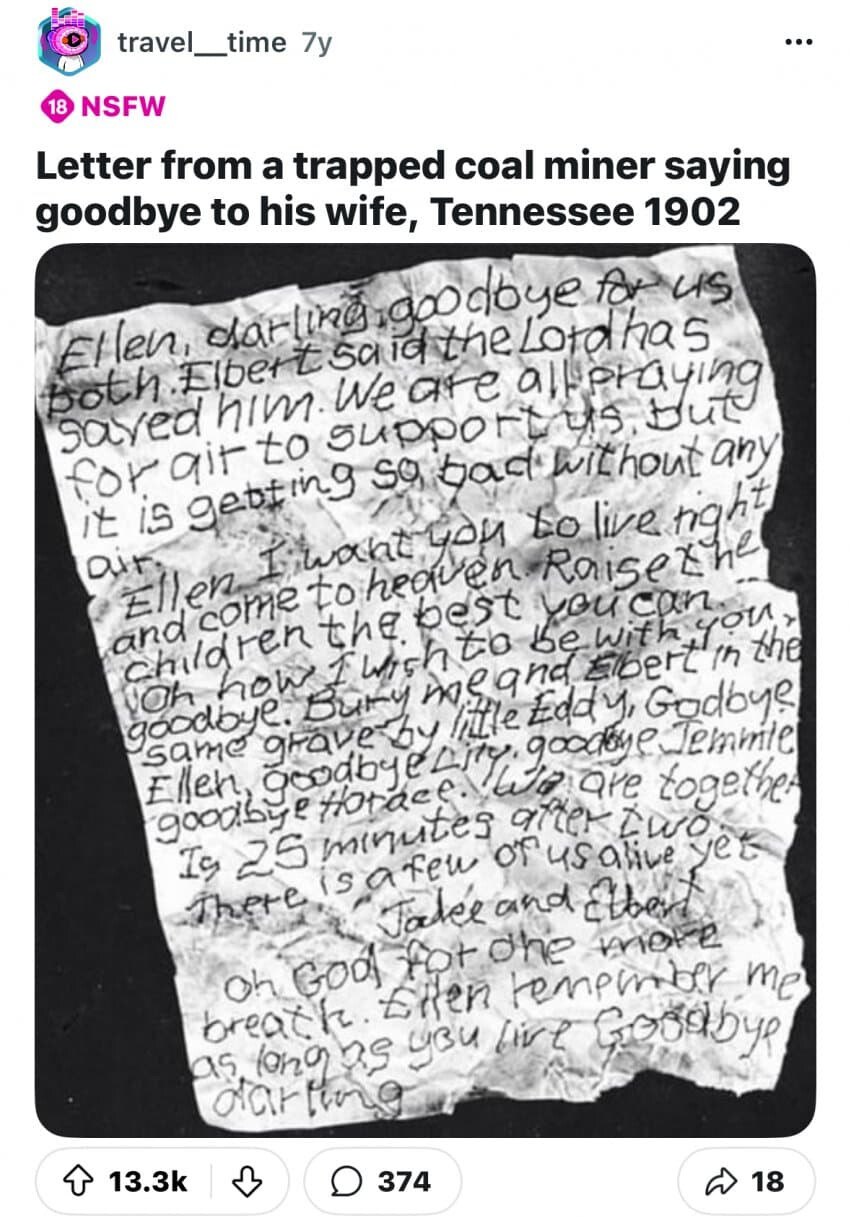 travel__time 7y
18 NSFW
Letter from a trapped coal miner saying
goodbye to his wife, Tennessee 1902
Ellen, darling, goodbye for us
both. Elbert said the Lord has
saved him. We are all praying
for air to support us, but
it is getting so bad without any
air.
Ellen I want you to live right
and come to heaven. Raise the
children the best you can.
Oh how I wish to be with you,
goodbye. Bury me and Elbert in the
same grave by little Eddy, Godbye
Ellen, goodbye Lily, goodbye Jemmie
goodbye Horace. We are together
Is 25 minutes after two.
There is a few of us alive yet
Jakee and Elbert
Oh God for one more
breath. Ellen remember me
as long as you live Goodbye
darling
13.3k 374 18